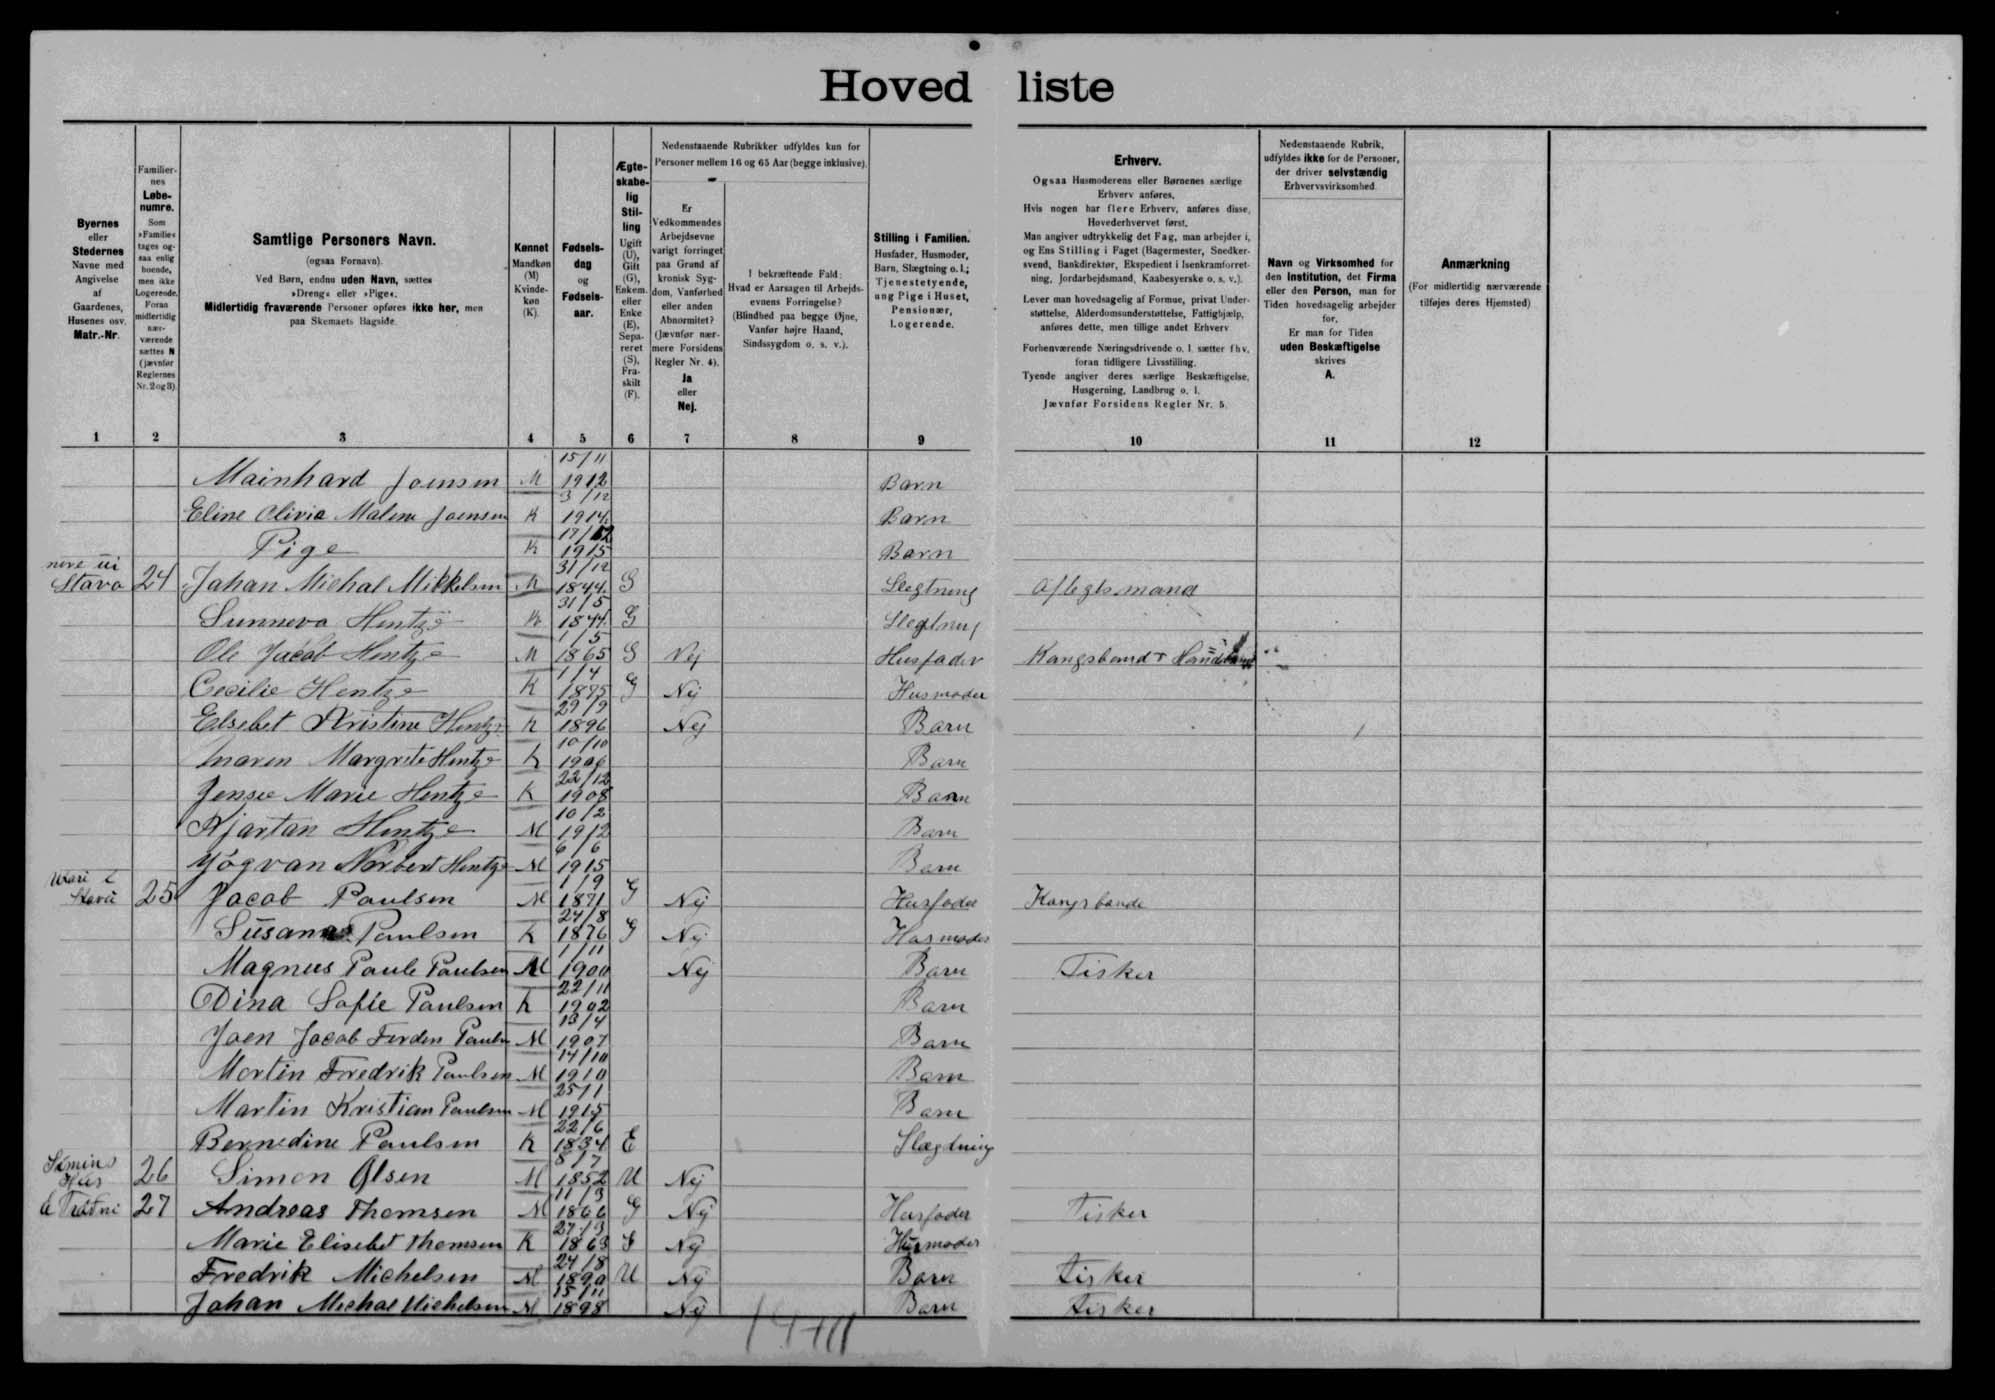 Hovedliste
Byernes
eller
Stedernes
Navne med
Angivelse
af
Gaardenes,
Husenes osv.
Matr.-Nr.
Familier-
nes
Løbe-
numre.
Som
»Familie«
tages og-
saa enlig
boende,
men ikke
Logerende.
Foran
midlertidig
nær-
værende
sættes N
(jævnfør
Reglernes
Nr. 2 og 3).
Samtlige Personers Navn.
(ogsaa Fornavn).
Ved Børn, endnu uden Navn, sættes
»Dreng« eller »Pige«.
Midlertidig fraværende Personer opføres ikke her, men
paa Skemaets Bagside.
Kønnet
Mandkøn
(M)
Kvinde-
køn
(K).
Fødsels-
dag
og
Fødsels-
aar.
Ægte-
skabe-
lig
Stil-
ling
Ugift
(U),
Gift
(G),
Enkem.
eller
Enke
(E),
Sepa-
reret
(S),
Fra-
skilt
(F).
Nedenstaaende Rubrikker udfyldes kun for
Personer mellem 16 og 65 Aar (begge inklusive).
Er
Vedkommendes
Arbejdsevne
varigt forringet
paa Grund af
kronisk Syg-
dom, Vanførhed
eller anden
Abnormitet?
(Jævnfør nær-
mere Forsidens
Regler Nr. 4).
Ja
eller
Nej.
I bekræftende Fald:
Hvad er Aarsagen til Arbejds-
evnens Forringelse?
(Blindhed paa begge Øjne,
Vanfør højre Haand,
Sindssygdom o. s. v.).
Stilling i Familien.
Husfader, Husmoder,
Barn, Slægtning o. l.;
Tjenestetyende,
ung Pige i Huset,
Pensionær,
Logerende.
Erhverv.
Ogsaa Husmoderens eller Børnenes særlige
Erhverv anføres.
Hvis nogen har flere Erhverv, anføres disse,
Hovederhvervet først.
Man angiver udtrykkelig det Fag, man arbejder i,
og Ens Stilling i Faget (Bagermester, Snedker-
svend, Bankdirektør, Ekspedient i Isenkramforret-
ning, Jordarbejdsmand, Kaabesyerske o. s. v.).
Lever man hovedsagelig af Formue, privat Under-
støttelse, Alderdomsunderstøttelse, Fattighjælp,
anføres dette, men tillige andet Erhverv
Forhenværende Næringsdrivende o. l. sætter fhv.
foran tidligere Livsstilling.
Tyende angiver deres særlige Beskæftigelse,
Husgerning, Landbrug o. l.
Jævnfør Forsidens Regler Nr. 5.
Nedenstaaende Rubrik,
udfyldes ikke for de Personer,
der driver selvstændig
Erhvervsvirksomhed.
Navn og Virksomhed for
den Institution, det Firma
eller den Person, man for
Tiden hovedsagelig arbejder
for.
Er man for Tiden
uden Beskæftigelse
skrives
A.
Anmærkning
(For midlertidig nærværende
tilføjes deres Hjemsted)
1 2 3 4 5 6 7 8 9 10 11 12
Mainhard Joensen M 15/11 1912 Barn
Eline Olivia Malene Joensen K 3/12 1914 Barn
Pige K 17/12 1915 Barn
Stava 24 Johan Michal Mikkelsen M 31/12 1844 G Slegtning Aflegtsmand
Sunneva Hentze K 31/5 1844 G Slegtning
Ole Jacob Hentze M 1/5 1865 G Nej Husfader Kongsbonde + Handelsmand
Cecilie Hentze K 1/4 1875 G Nej Husmoder
Elsebet Kristine Hentze K 29/9 1896 Nej Barn
Maren Margrete Hentze K 10/10 1906 Barn
Jensie Marie Hentze K 22/12 1908 Barn
Kjartan Hentze M 10/2 1912 Barn
Jógvan Norbert Hentze M 6/6 1915 Barn
25 Jacob Poulsen M 1/9 1871 G Nej Husfader Kongsbonde
Susanna Poulsen K 24/8 1876 G Nej Husmoder
Magnus Paule Poulsen M 1/11 1900 Nej Barn Fisker
Dina Sofie Poulsen K 22/11 1902 Barn
Joen Jacob Ferdin Poulsen M 13/4 1907 Barn
Mortin Fredrik Poulsen M 14/10 1910 Barn
Martin Kristian Poulsen M 25/1 1915 Barn
Bernedine Poulsen K 22/6 1834 E Slægtning
Simins
Hus 26 Simon Olsen M 8/7 1852 U Nej
27 Andreas Thomsen M 11/3 1866 G Nej Husfader Fisker
Marie Elisebet Thomsen K 27/3 1863 G Nej Husmoder
Fredrik Michelsen M 24/8 1890 U Nej Barn Fisker
Johan Michal Michelsen M 15/11 1898 Nej Barn Fisker
14+11